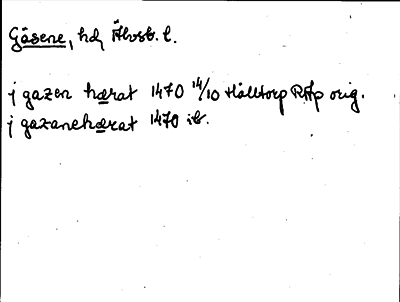 Gäsene, hd, Älvsb. l.
j gazen hærat 1470 14/10 Hålltorp RAp orig.
j gazanehærat 1470 ib.